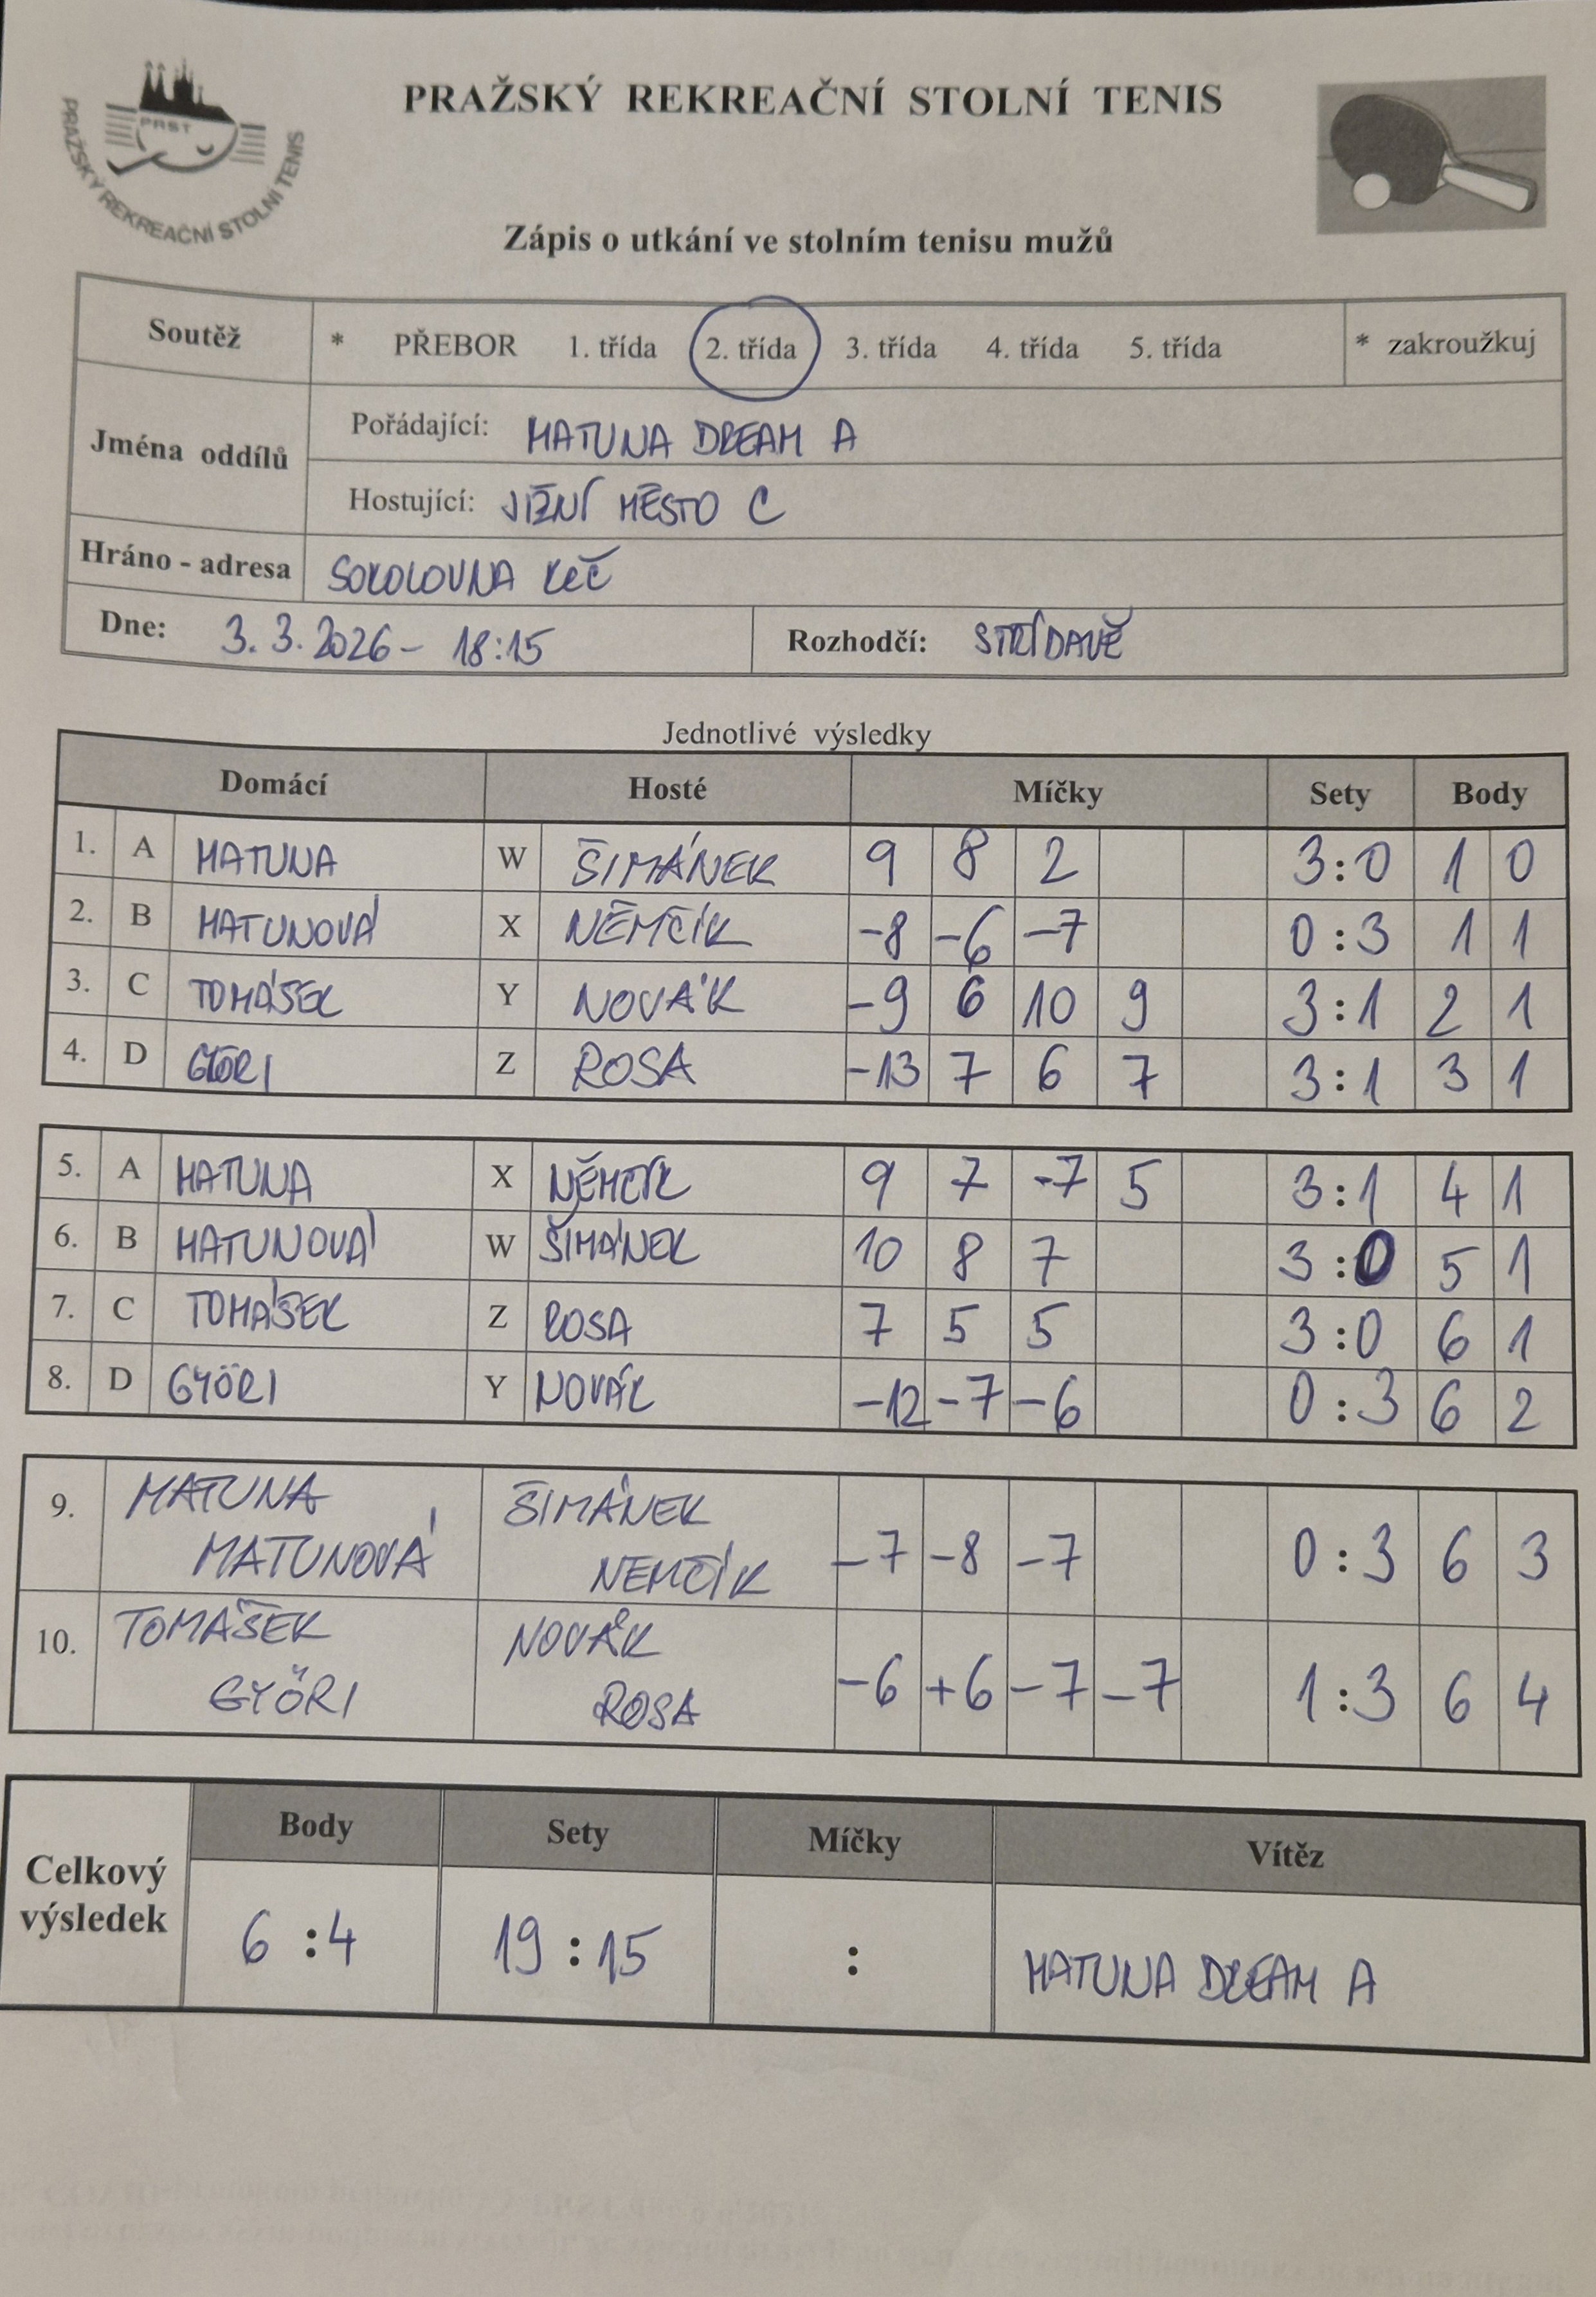 PRAŽSKÝ REKREAČNÍ STOLNÍ TENIS
PRST
PRAŽSKÝ REKREAČNÍ STOLNÍ TENIS
Zápis o utkání ve stolním tenisu mužů
Soutěž * PŘEBOR 1. třída 2. třída 3. třída 4. třída 5. třída * zakroužkuj
Jména oddílů
Pořádající: MATUNA DREAM A
Hostující: JIŽNÍ MĚSTO C
Hráno - adresa SOKOLOVNA KČ
Dne: 3.3.2026 - 18:15 Rozhodčí: STŘÍDAVĚ
Jednotlivé výsledky
Domácí Hosté Míčky Sety Body
1. A MATUNA W ŠIMÁNEK 9 8 2 3:0 1 0
2. B MATUNOVÁ X NĚMČÍK -8 -6 -7 0:3 1 1
3. C TOMÁŠEK Y NOVÁK -9 6 10 9 3:1 2 1
4. D GYÖRI Z ROSA -13 7 6 7 3:1 3 1
5. A MATUNA X NĚMČÍK 9 7 -7 5 3:1 4 1
6. B MATUNOVÁ W ŠIMÁNEK 10 8 7 3:0 5 1
7. C TOMÁŠEK Z ROSA 7 5 5 3:0 6 1
8. D GYÖRI Y NOVÁK -12 -7 -6 0:3 6 2
9. MATUNA ŠIMÁNEK
MATUNOVÁ NEMČÍK -7 -8 -7 0:3 6 3
10. TOMÁŠEK NOVÁK
GYÖRI ROSA -6 +6 -7 -7 1:3 6 4
Celkový výsledek
Body Sety Míčky Vítěz
6:4 19:15 : MATUNA DREAM A